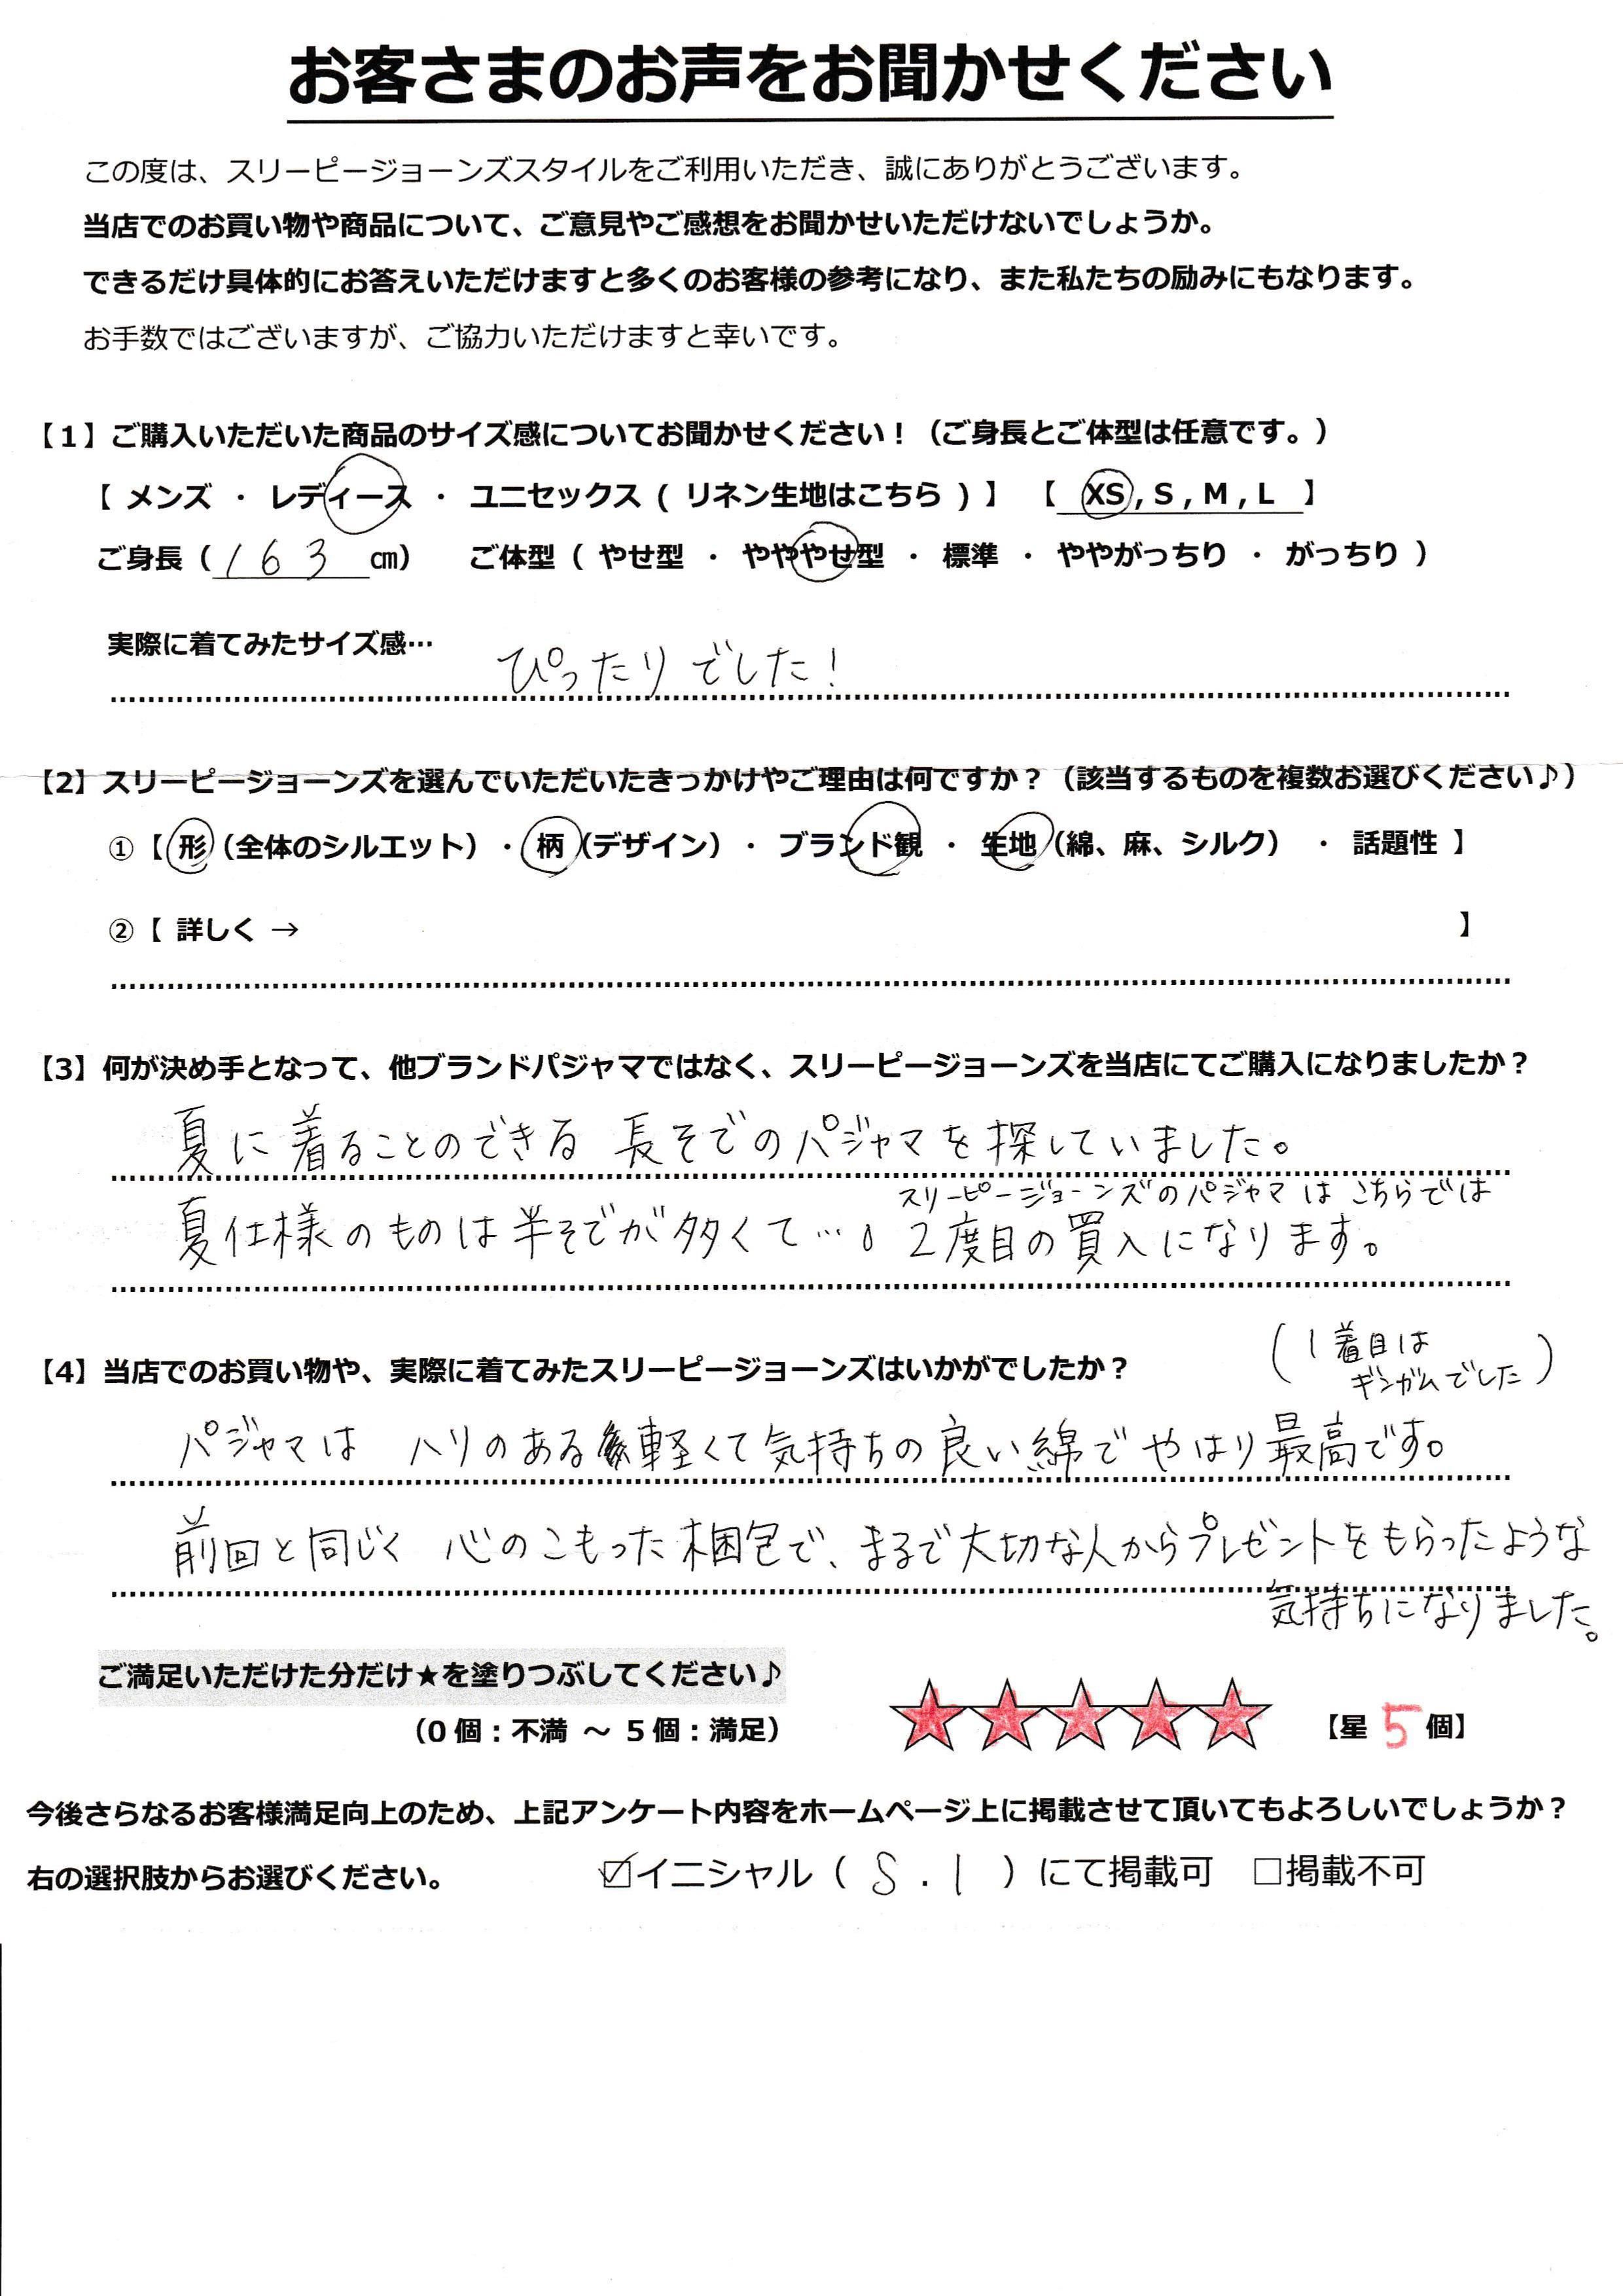 お客さまのお声をお聞かせください
この度は、スリーピージョーンズスタイルをご利用いただき、誠にありがとうございます。
当店でのお買い物や商品について、ご意見やご感想をお聞かせいただけないでしょうか。
できるだけ具体的にお答えいただけますと多くのお客様の参考になり、また私たちの励みにもなります。
お手数ではございますが、ご協力いただけますと幸いです。
【1】ご購入いただいた商品のサイズ感についてお聞かせください！（ご身長とご体型は任意です。）
【 メンズ ・ レディース ・ ユニセックス ( リネン生地はこちら ) 】 【 XS , S , M , L 】
ご身長（ 163 ㎝） ご体型（ やせ型 ・ ややや​せ型 ・ 標準 ・ ややがっちり ・ がっちり ）
実際に着てみたサイズ感… ぴったりでした！
【2】スリーピージョーンズを選んでいただいたきっかけやご理由は何ですか？（該当するものを複数お選びください♪）
①【 形（全体のシルエット）・ 柄（デザイン）・ ブランド観 ・ 生地（綿、麻、シルク） ・ 話題性 】
②【 詳しく → 】
【3】何が決め手となって、他ブランドパジャマではなく、スリーピージョーンズを当店にてご購入になりましたか？
夏に着ることのできる 長そでのパジャマを探していました。
夏仕様のものは半そでが多くて…。 スリーピージョーンズのパジャマは こちらでは
2度目の買入になります。
（1着目は
ギンガムでした）
【4】当店でのお買い物や、実際に着てみたスリーピージョーンズはいかがでしたか？
パジャマは ハリのある軽くて気持ちの良い綿で やはり最高です。
前回と同じく 心のこもった梱包で、まるで大切な人からプレゼントをもらったような
気持ちになりました。
ご満足いただけた分だけ★を塗りつぶしてください♪
（0 個：不満 ～ 5 個：満足） ★★★★★ 【星 5 個】
今後さらなるお客様満足向上のため、上記アンケート内容をホームページ上に掲載させて頂いてもよろしいでしょうか？
右の選択肢からお選びください。 ☑イニシャル（ S . I ）にて掲載可 □掲載不可